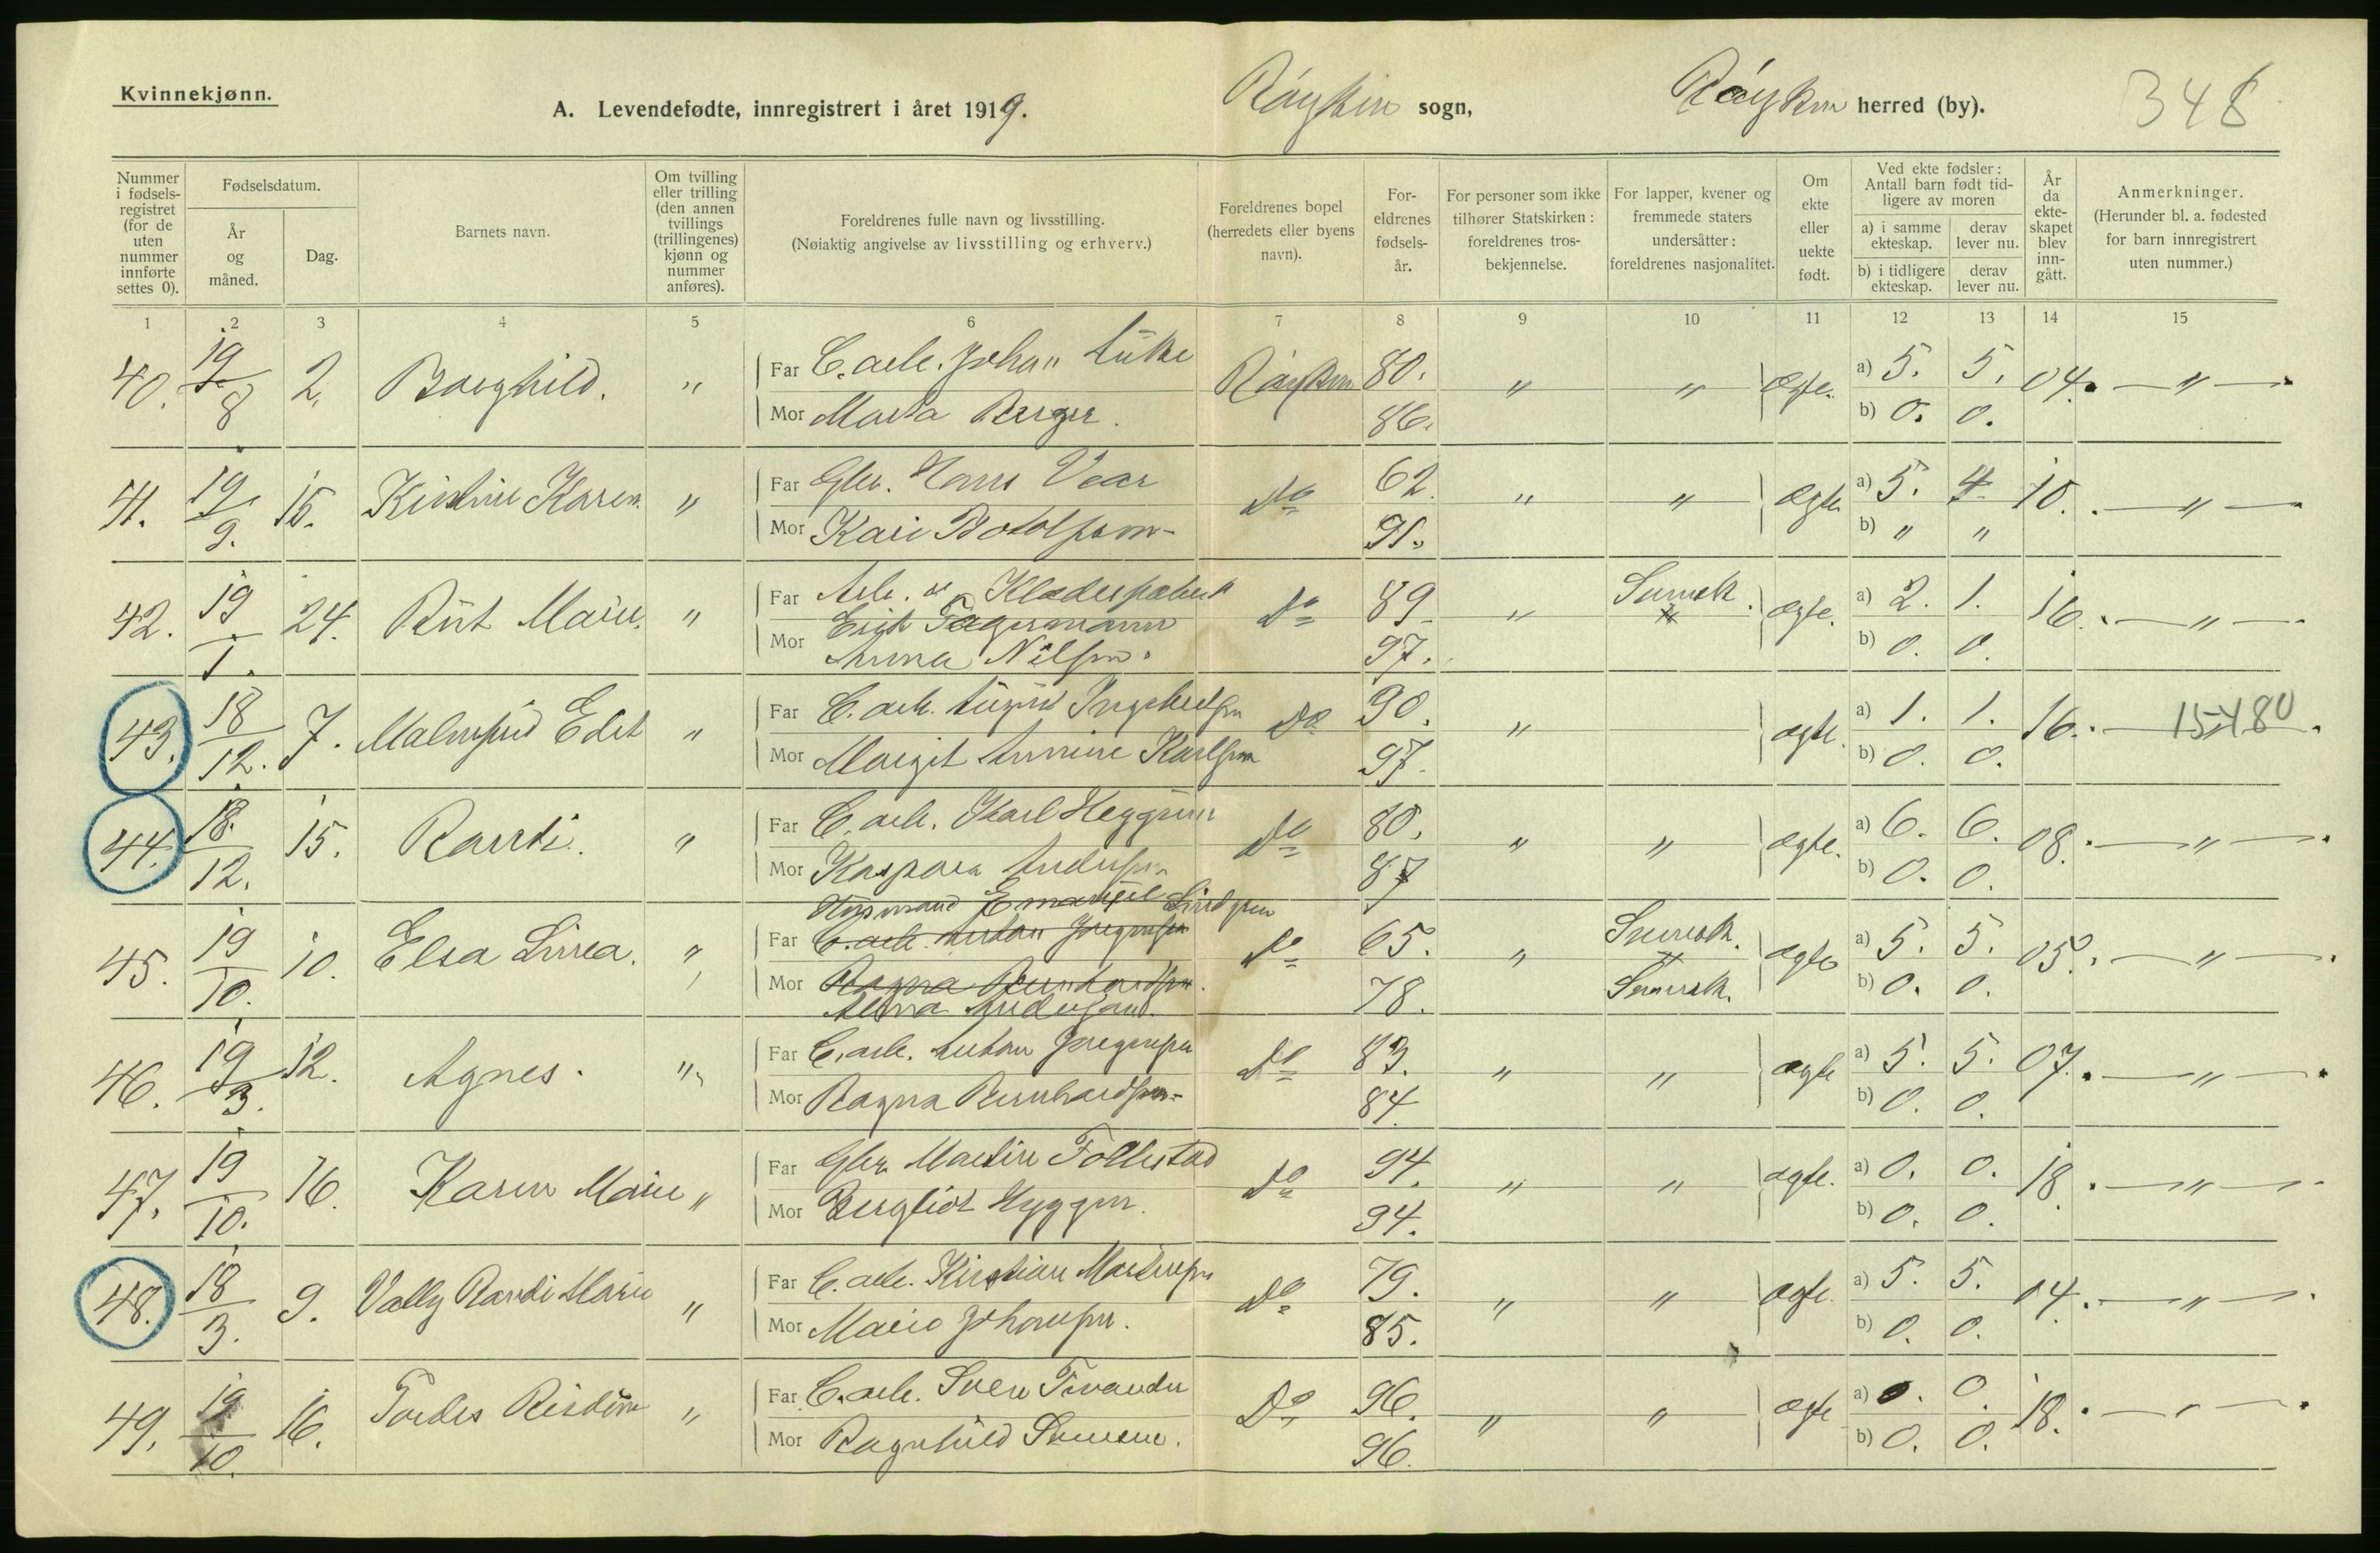 Kvinnekjønn.
A. Levendefødte, innregistrert i året 1919. Røyken sogn, Røyken herred (by). 348
Nummer i fødsels- registret (for de uten nummer innførte settes 0).
Fødselsdatum.
År og måned.
Dag.
Barnets navn.
Om tvilling eller trilling (den annen tvillings (trillingenes) kjønn og nummer anføres).
Foreldrenes fulle navn og livsstilling.
(Nøiaktig angivelse av livsstilling og erhverv.)
Foreldrenes bopel (herredets eller byens navn).
For- eldrenes fødsels- år.
For personer som ikke tilhører Statskirken: foreldrenes tros- bekjennelse.
For lapper, kvener og fremmede staters undersåtter: foreldrenes nasjonalitet.
Om ekte eller uekte født.
Ved ekte fødsler: Antall barn født tid- ligere av moren
a) i samme ekteskap. derav lever nu.
b) i tidligere ekteskap. derav lever nu.
År da ekte- skapet blev inn- gått.
Anmerkninger.
(Herunder bl. a. fødested for barn innregistrert uten nummer.)
1 2 3 4 5 6 7 8 9 10 11 12 13 14 15
40. 19/8 2. Borghild. " Far C. arb. Johan Røyken 80. " " ægte. a) 5. 5. 04. — " —
Mor Marta Berger. 86. b) 0. 0.
41. 19/9. 15. Kirstine Karen. " Far Gbr. Hans Vear Do 62. " " ægte a) 5. 4. 10. — " —
Mor Kari Botolfsen 91. b) " "
42. 19/1. 24. Rut Marie. " Far Arb. Do 89. " Svensk. ægte. a) 2. 1. 16. — " —
Erik Fagermann
Mor Anna Nilsen. 97. b) 0. 0.
43. 18/12. 7. Malmfrid Edit " Far C. arb. Sigurd Ingebretsen Do 90. " ægte. a) 1. 1. 16. 15480.
Mor Margit Annine Karlsen 97. b) 0. 0.
44. 18./12. 15. Randi. " Far C. arb. Karl Heggum Do 80. " " ægte. a) 6. 6. 08. — " —
Mor Kaspara Andersen 87 b) 0. 0.
Husmand Emanuel Lindgren
45. 19/10. 10. Elsa Linea. " Far C. arb. Anton Jørgensen Do 65. " Svensk. ægte a) 5. 5. 05. — " —
Mor Ragna Bernhardsen. 78. Svensk. b) 0. 0.
46. 19/3. 12. Agnes. " Far C. arb. Anton Jørgensen Do 83. " " ægte a) 5. 5. 07. — " —
Mor Ragna Bernhardsen 84. b) 0. 0.
47. 19/10. 16. Karen Marie " Far Gbr. Martin Follestad Do 94. " " ægte. a) 0. 0. 18. — " —
Mor Bergliot Hyggen. 94. b) 0. 0.
48. 18/3. 9. Vally Randi Marie " Far C. arb. Kristian Martinsen Do 79. " " ægte. a) 5. 5. 04. — " —
Mor Marie Johansen. 85. b) 0. 0.
49. 19/10. 16. " Far C. arb. Do 96. " " ægte a) 0. 0. 18. — " —
Mor Ragnhild 96. b) 0. 0.